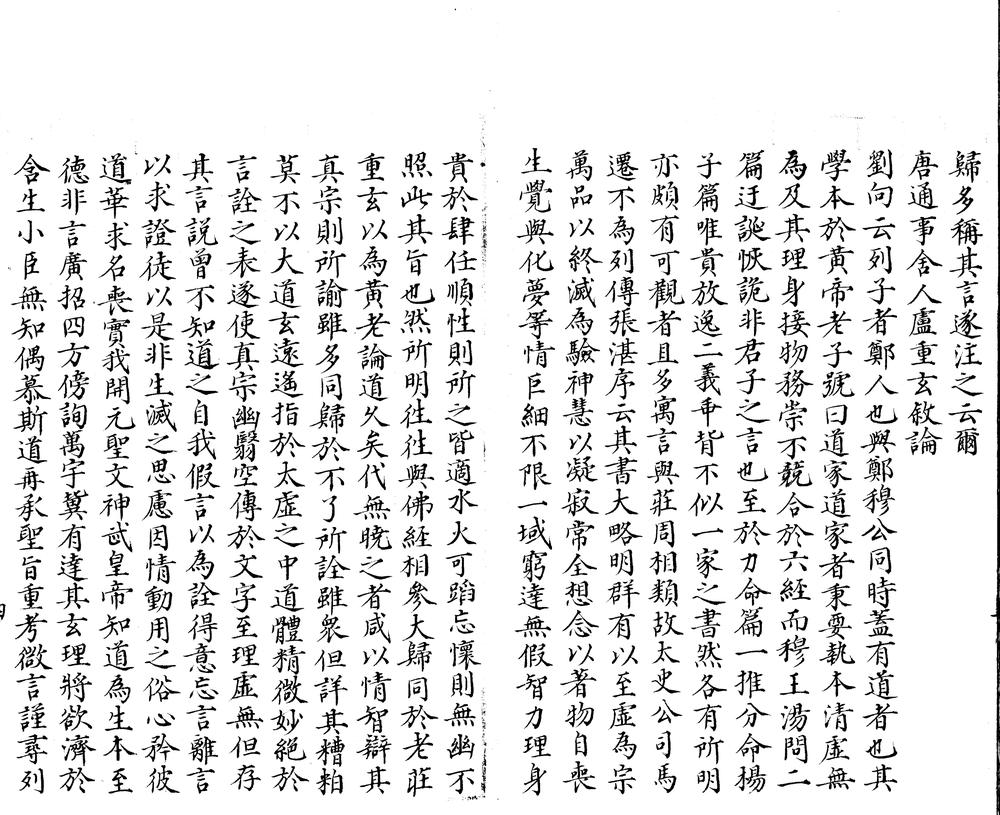 歸多稱其言遂注之云爾
唐通事舍人盧重玄敘論
劉向云列子者鄭人也與鄭穆公同時蓋有道者也其
學本於黃帝老子號曰道家道家者秉要執本清虛無
為及其理身接物務崇不競合於六經而穆王湯問二
篇迂誕恢詭非君子之言也至於力命篇一推分命楊
子篇唯貴放逸二義乖背不似一家之書然各有所明
亦頗有可觀者且多寓言與莊周相類故太史公司馬
遷不為列傳張湛序云其書大略明群有以至虛為宗
萬品以終滅為驗神慧以凝寂常全想念以著物自喪
生覺與化夢等情巨細不限一域窮達無假智力理身
貴於肆任順性則所之皆適水火可蹈忘懷則無幽不
照此其旨也然所明往往與佛經相參大歸同於老莊
重玄以為黃老論道久矣代無曉之者咸以情智辯其
真宗則所諭雖多同歸於不了所詮雖眾但詳其糟粕
莫不以大道玄遠遙指於太虛之中道體精微妙絕於
言詮之表遂使真宗幽翳空傳於文字至理虛無但存
其言說曾不知道之自我假言以為詮得意忘言離言
以求證徒以是非生滅之思慮因情動用之俗心矜彼
道華求名喪實我開元聖文神武皇帝知道為生本至
德非言廣招四方傍詢萬宇冀有達其玄理將欲濟於
含生小臣無知偶慕斯道再承聖旨重考微言謹尋列